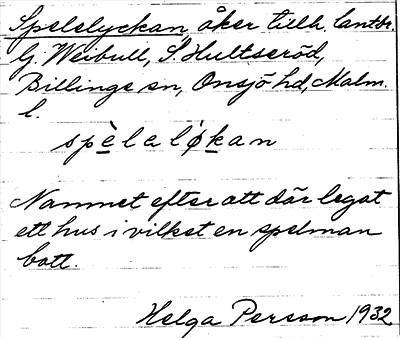 Spelelyckan, åker tillh. lantbr.
G. Weibull, S. Hultseröd,
Billinge sn, Onsjö hd, Malm.
l.
spèlaløkan
Namnet efter att där legat
ett hus i vilket en spelman
bott.
Helga Persson 1932